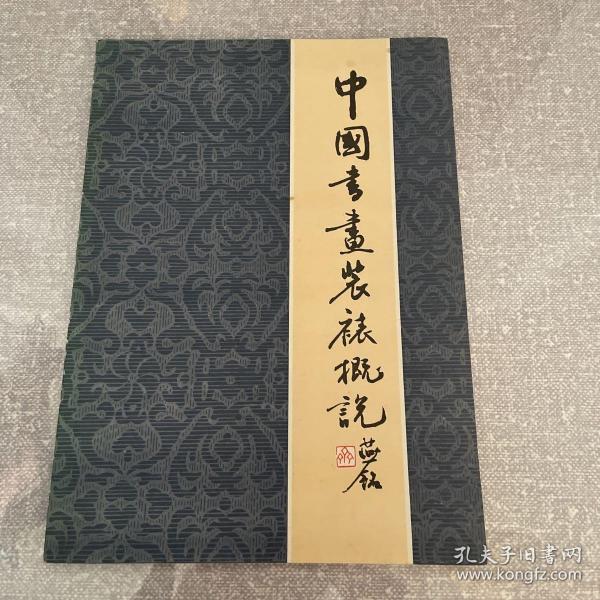 中國書畫裝裱概說
燕銘
孔夫子旧書网
www.kongfz.com